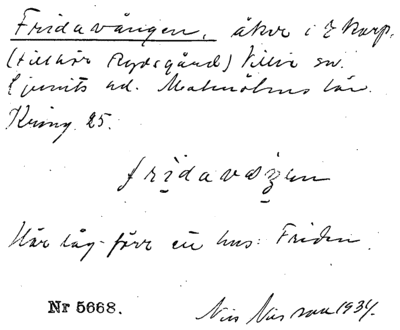 Fridavången, åker i Z Karp.
(tillhör Rydsgård) Villie sn.
Ljunits hd. Malmöhus län.
Kring 25.
fridavaŋen
Här låg förr ett hus: Friden.
Nr 5668. Nils Nilsson 1934.